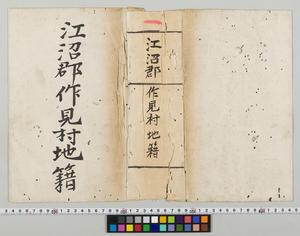 江沼郡作見村地籍
江沼郡
作見村地籍